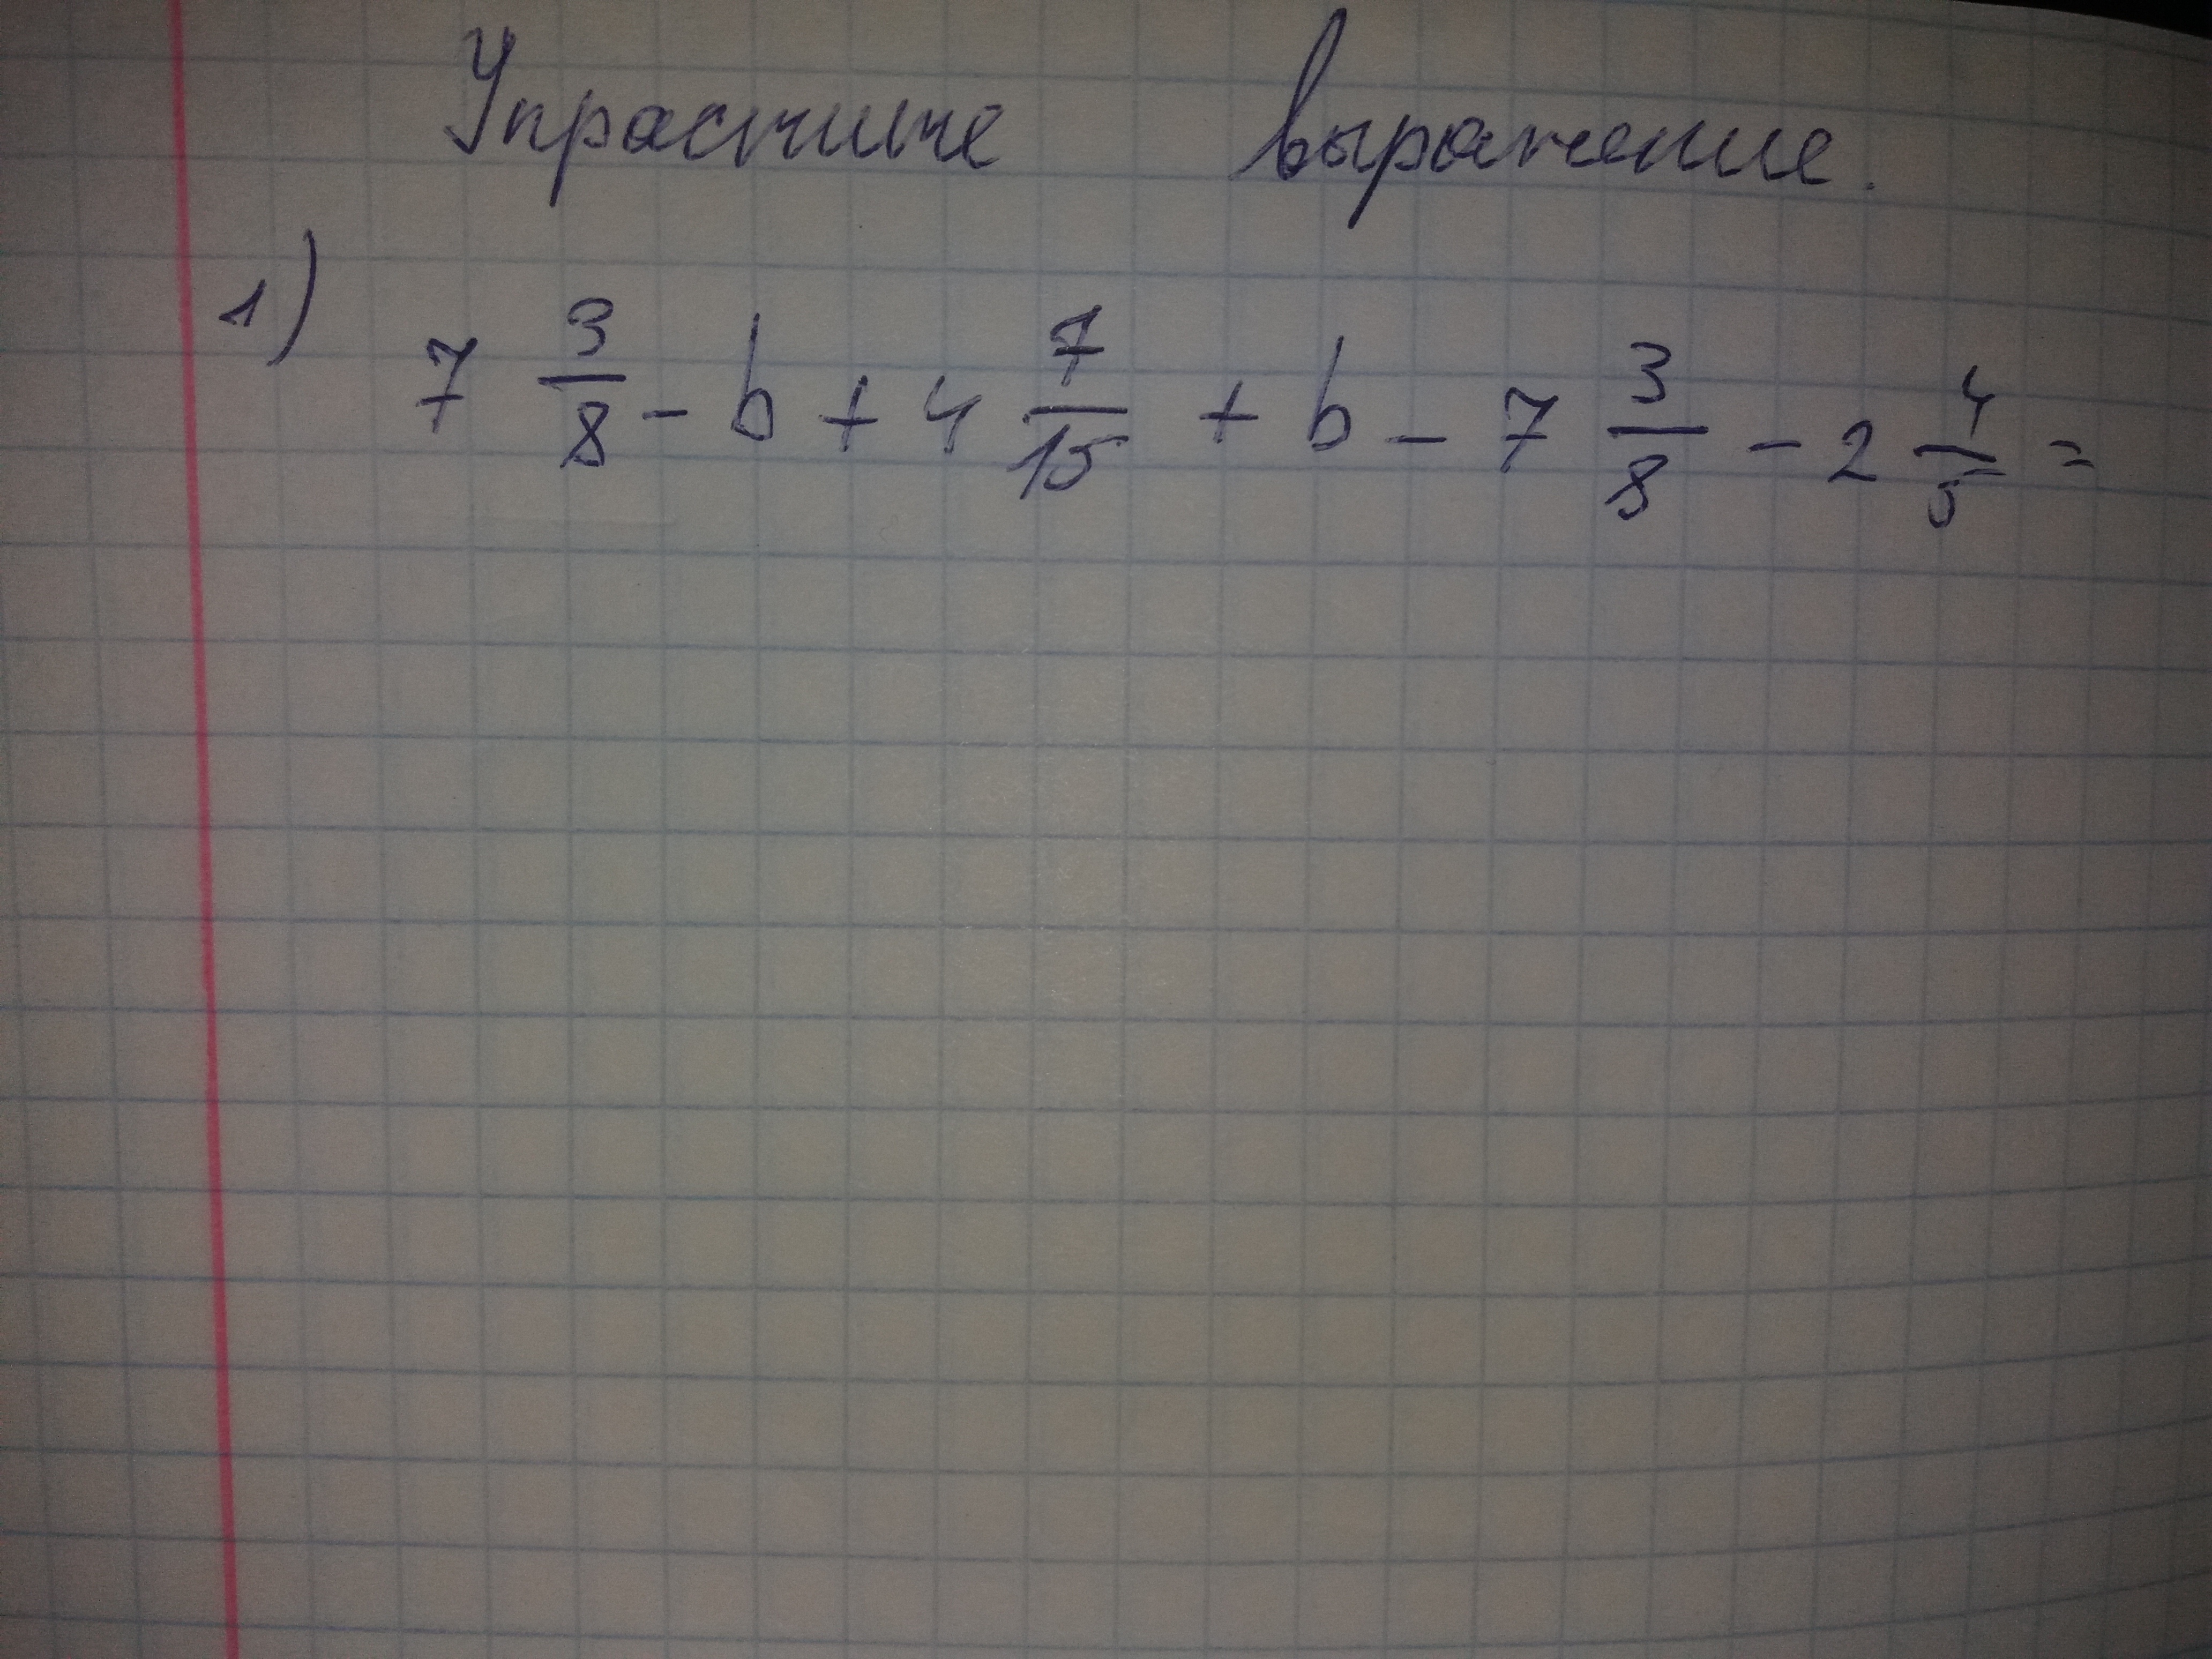 Упрастите выражение.
1) 7 3/8 - b + 4 7/15 + b - 7 3/8 - 2 4/5 =